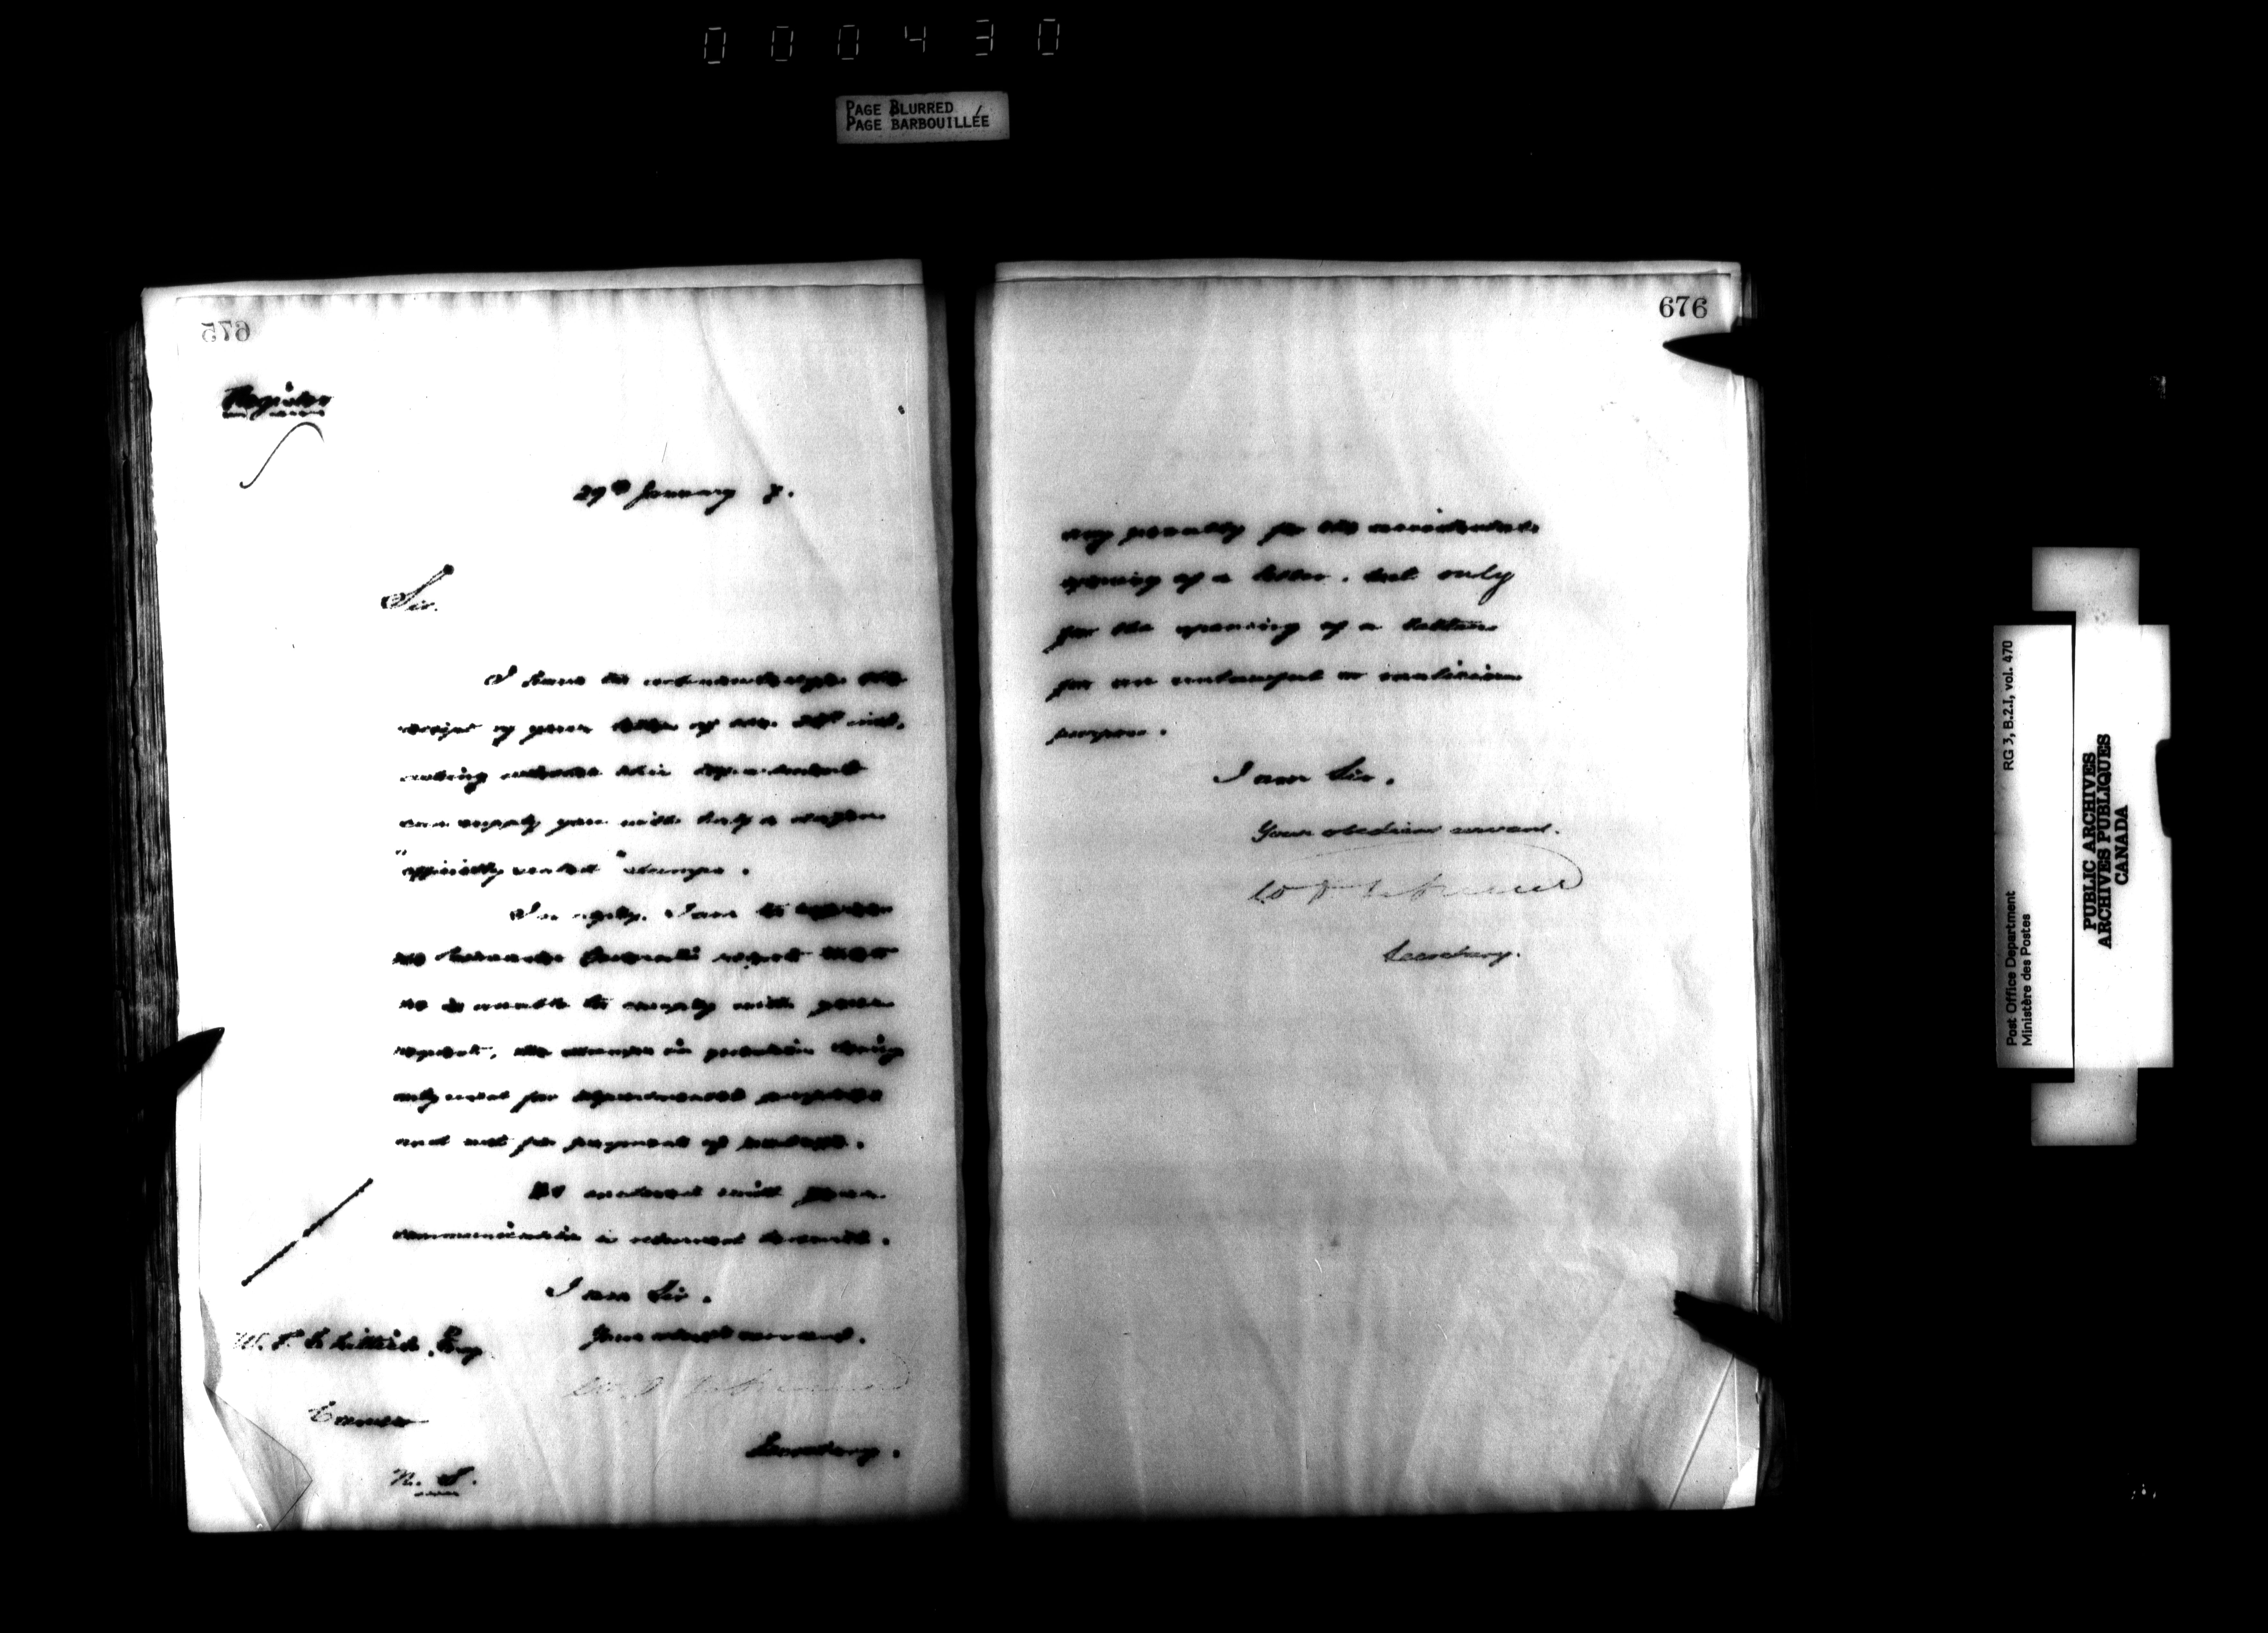 000430
PAGE BLURRED
PAGE BARBOUILLÉE
675
Register
29th January
Sir.
I have to acknowledge the
receipt of your letter of the inst.
asking whether this department
can supply you with half a dozen
"officially sealed" stamps.
In reply, I am to
the Postmaster General's regret that
he is unable to comply with your
request, the stamps in question being
only used for departmental purposes
and not for payment of postage.
enclosed with your
communication is returned herewith.
I am Sir.
Your obedt servant.
Esq
Secretary.
N. S.
676
any penalty for the accidental
opening of a letter, but only
for the opening of a letter
for an unlawful or malicious
purpose.
I am Sir.
Your obedient servant.
Secretary.
RG 3, B.2.I, vol. 470
Post Office Department
Ministère des Postes
PUBLIC ARCHIVES
ARCHIVES PUBLIQUES
CANADA